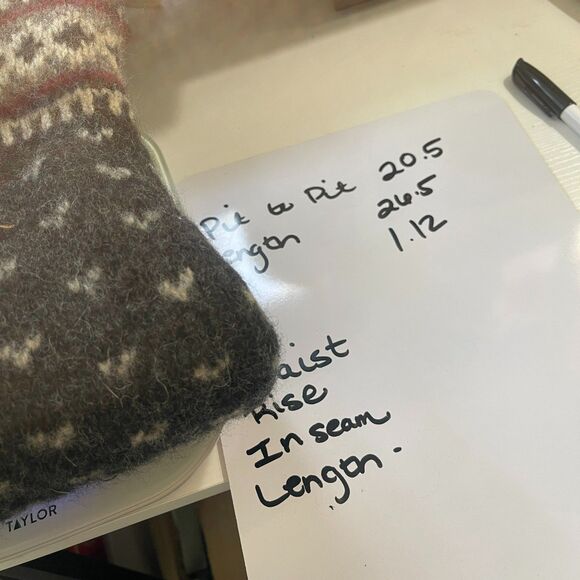 Pit to Pit 20.5
ength 26.5
1.12
aist
Rise
Inseam
Length.
TAYLOR